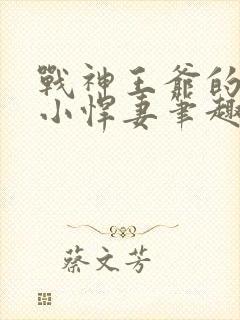 戰神王爺的
小悍妻筆趣
蔡文芳